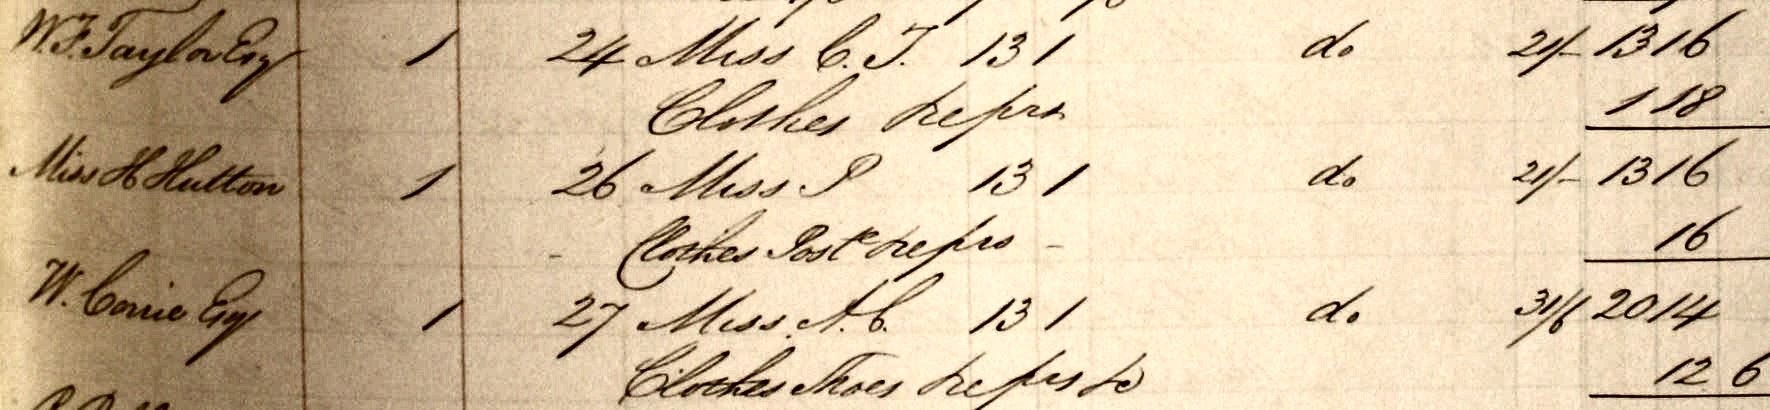 W. F. Taylor Esq 1 24 Miss C. T. 13 1 do 21/- 13 16
Clothes reprs 1 18
Miss H Hutton 1 26 Miss P 13 1 do 21/- 13 16
Clothes Postе reprs - 16
W. Corrie Esq 1 27 Miss A. C. 13 1 do 31/6 20 14
Clothes Shoes reprs &c 12 6